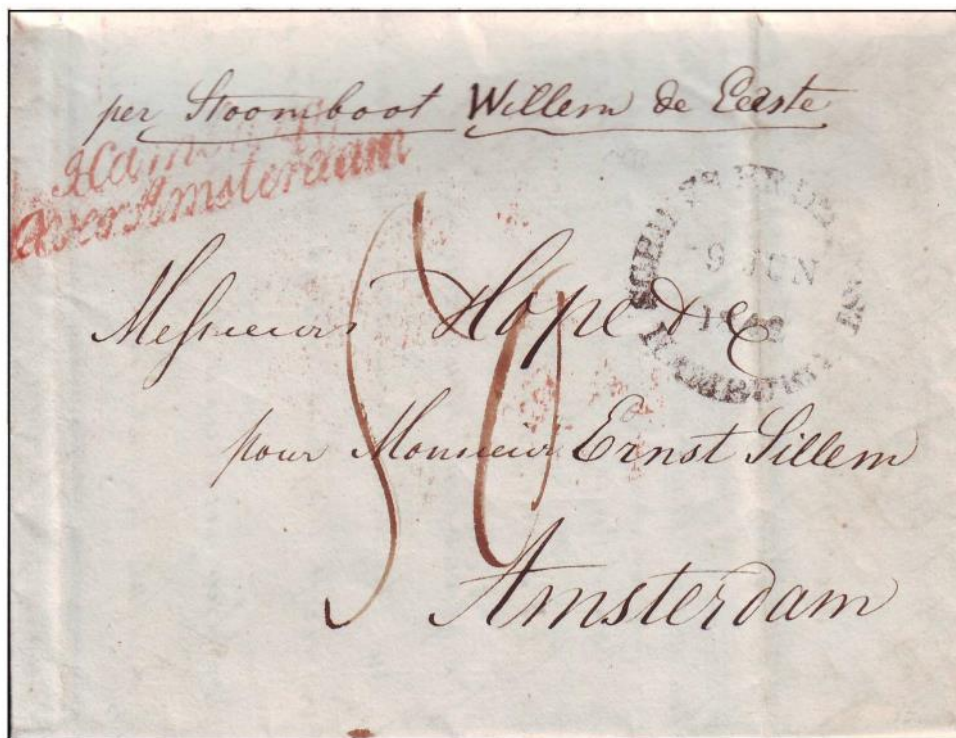 per Stoomboot Willem de Eerste
over Amsterdam
9 JUN
HAMBURG
Messieurs Hope & C
pour Monsieur Ernst Sillem
Amsterdam